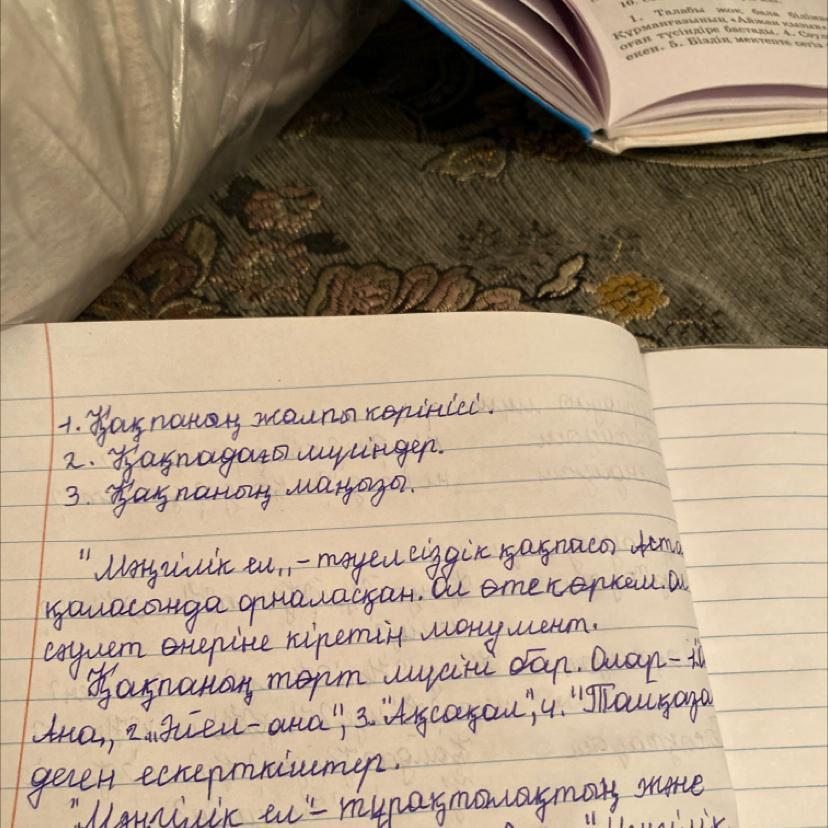 1. Талабы жоқ бала білімі
Құрманғазының «Айжан қызың»
оған түсіндіре бастады. 4. Сәул
екен. 5. Біздің мектепте сегіз
1. Қақпаның жалпы көрінісі.
2. Қақпадағы мүсіндер.
3. Қақпаның маңызы.
"Мәңгілік ел,, - тәуелсіздік қақпасы Аста
қаласында орналасқан. Ол өте көркем. Ол
сәулет өнеріне кіретін монумент.
Қақпаның төрт мүсіні бар. Олар - 1.
Ана,, 2.,,Әйел-ана", 3."Ақсақал", 4."
деген ескерткіштер.
"Мәңгілік ел" - тұрақтылықтың және
"Мәңгілік